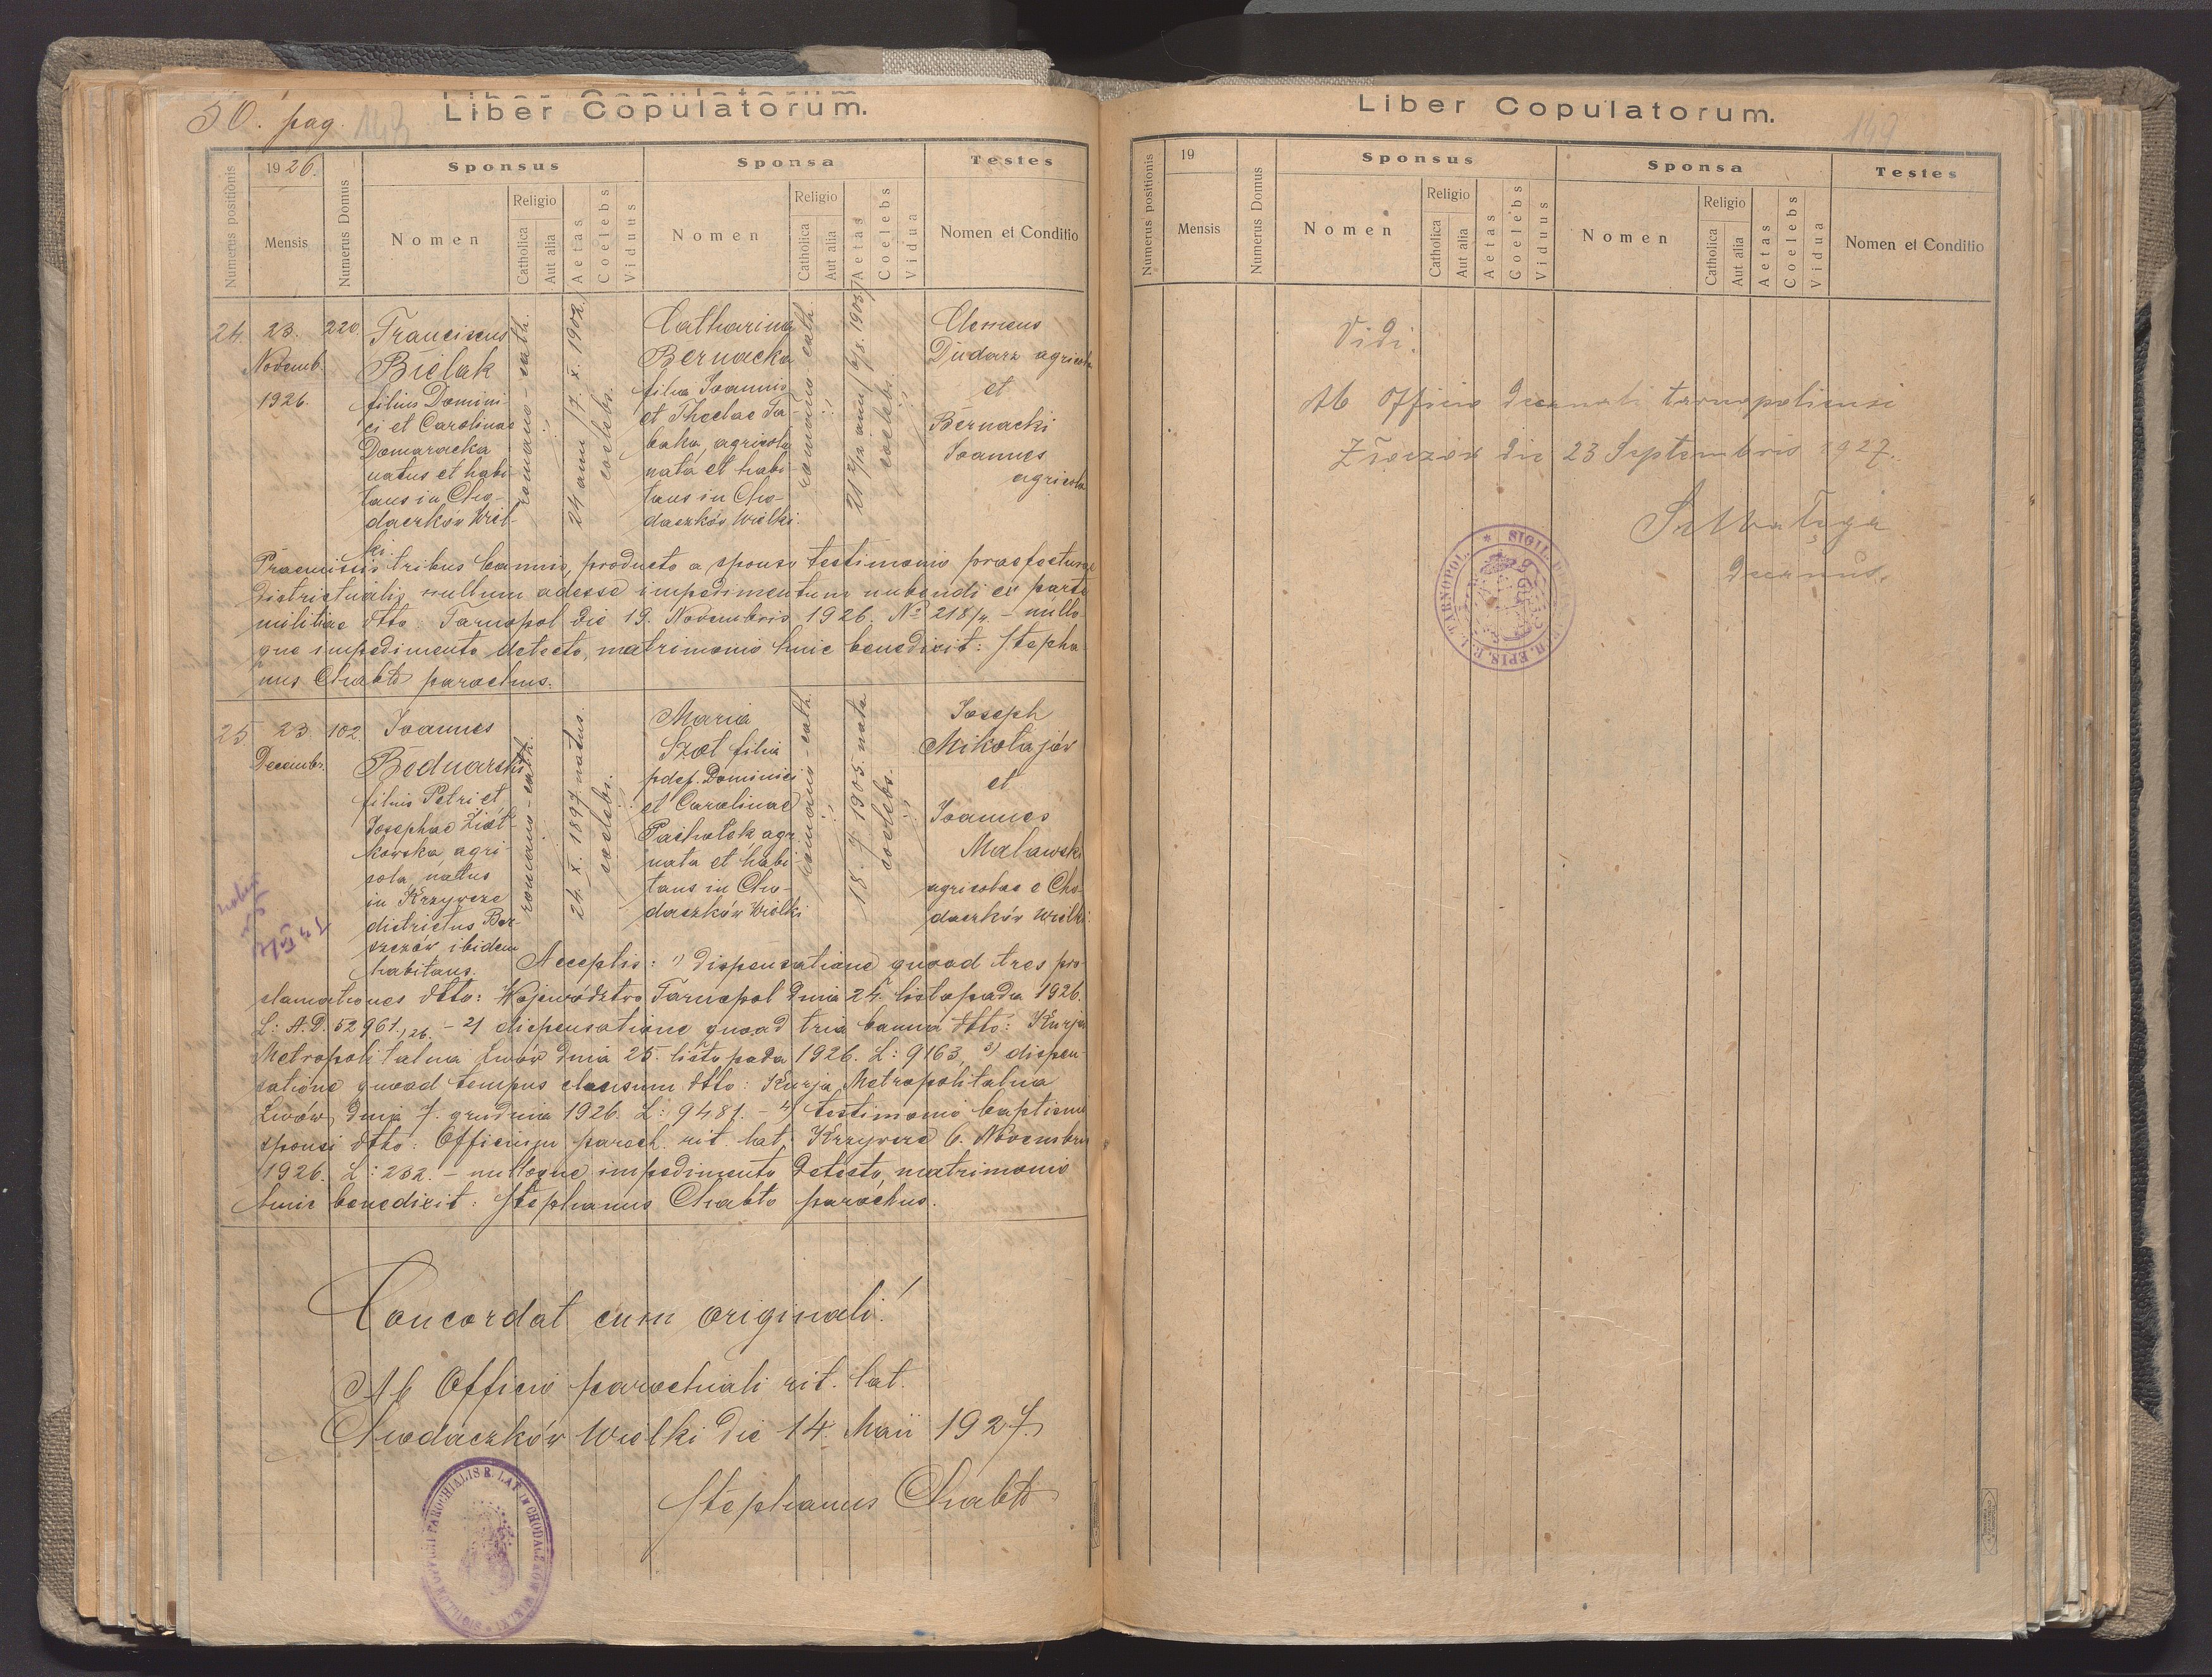 50. pag.
143
Liber Copulatorum.
Numerus positionis
1926.
Mensis
Numerus Domus
Sponsus
Nomen
Religio
Catholica
Aut alia
Aetas
Coelebs
Viduus
Sponsa
Nomen
Religio
Catholica
Aut alia
Aetas
Coelebs
Vidua
Testes
Nomen et Conditio
24.
23.
Novemb.
1926.
220.
Franciscus
Bielak
filius Domini-
ci et Carolinae
Domaracka
natus et habi-
tans in Cho-
daczków Wiel-
ki.
romano-cath.
24 ann / 7. X. 1902.
coelebs.
Catharina
Bernacka
filia Joannis
et Theclae Ta-
baka, agricola
nata et habi-
tans in Cho-
daczków Wielki.
romano cath.
coelebs.
Clemens
Dudarz agricola
et
Bernacki
Joannes
agricola
Praemissis tribus bannis, producto a sponso testimonio praefecturae
districtualis nullum adesse impedimentum nubendi ex parte
militiae dtto Tarnopol die 19. Novembris 1926. No 218/4 – nullo-
que impedimento detecto, matrimonio huic benedixit: Stepha-
nus Chabło parochus.
25
23.
Decembr.
102.
Joannes
Bednarski
filius Petri et
Josephae Ziół-
kowska, agri-
cola, natus
in Krzywcze
districtus Bor-
szczów ibidem
habitans.
romano-cath.
24. X. 1897 natus.
coelebs.
Maria
Szot filia
pdef. Dominici
et Carolinae
Pachołek agr.
nata et habi-
tans in Cho-
daczków Wielki
romano-cath.
1905. nata
coelebs.
Joseph
Mikołajów
et
Joannes
Malawski
agricolae e Cho-
daczków Wielki.
Acceptis: 1) dispensatione quoad tres pro-
clamationes dtto: Województwo Tarnopol dnia 24. listopada 1926.
L: A.D. 52961./26. – 2) dispensatione quoad tria banna dtto: Kurja
Metropolitalna Lwów dnia 25. listopada 1926. L: 9163, 3) dispen-
satione quoad tempus clausum dtto: Kurja Metropolitalna
Lwów, dnia 7. grudnia 1926. L: 9481. – 4) testimonio baptismi
sponsi dtto: Officium paroch. rit. lat. Krzywcze 6. Novembris
1926. L: 232. – nulloque impedimento detecto, matrimonio
huic benedixit: Stephanus Chabło parochus.
Concordat cum originali!
Ab Officio parochiali rit. lat.
Chodaczków Wielki die 14. Maii 1927.
Stephanus Chabło
SIGILLUM OFFICII PAROCHIALIS R. LAT. IN CHODACZKÓW WIELKI
Liber Copulatorum.
Numerus positionis
19
Mensis
Numerus Domus
Sponsus
Nomen
Religio
Catholica
Aut alia
Aetas
Coelebs
Viduus
Sponsa
Nomen
Religio
Catholica
Aut alia
Aetas
Coelebs
Vidua
Testes
Nomen et Conditio
Vidi.
Ab Officio decanali tarnopoliensi
die 23 Septembris 1927.
decanus.
TARNOPOL. * SIGIL.